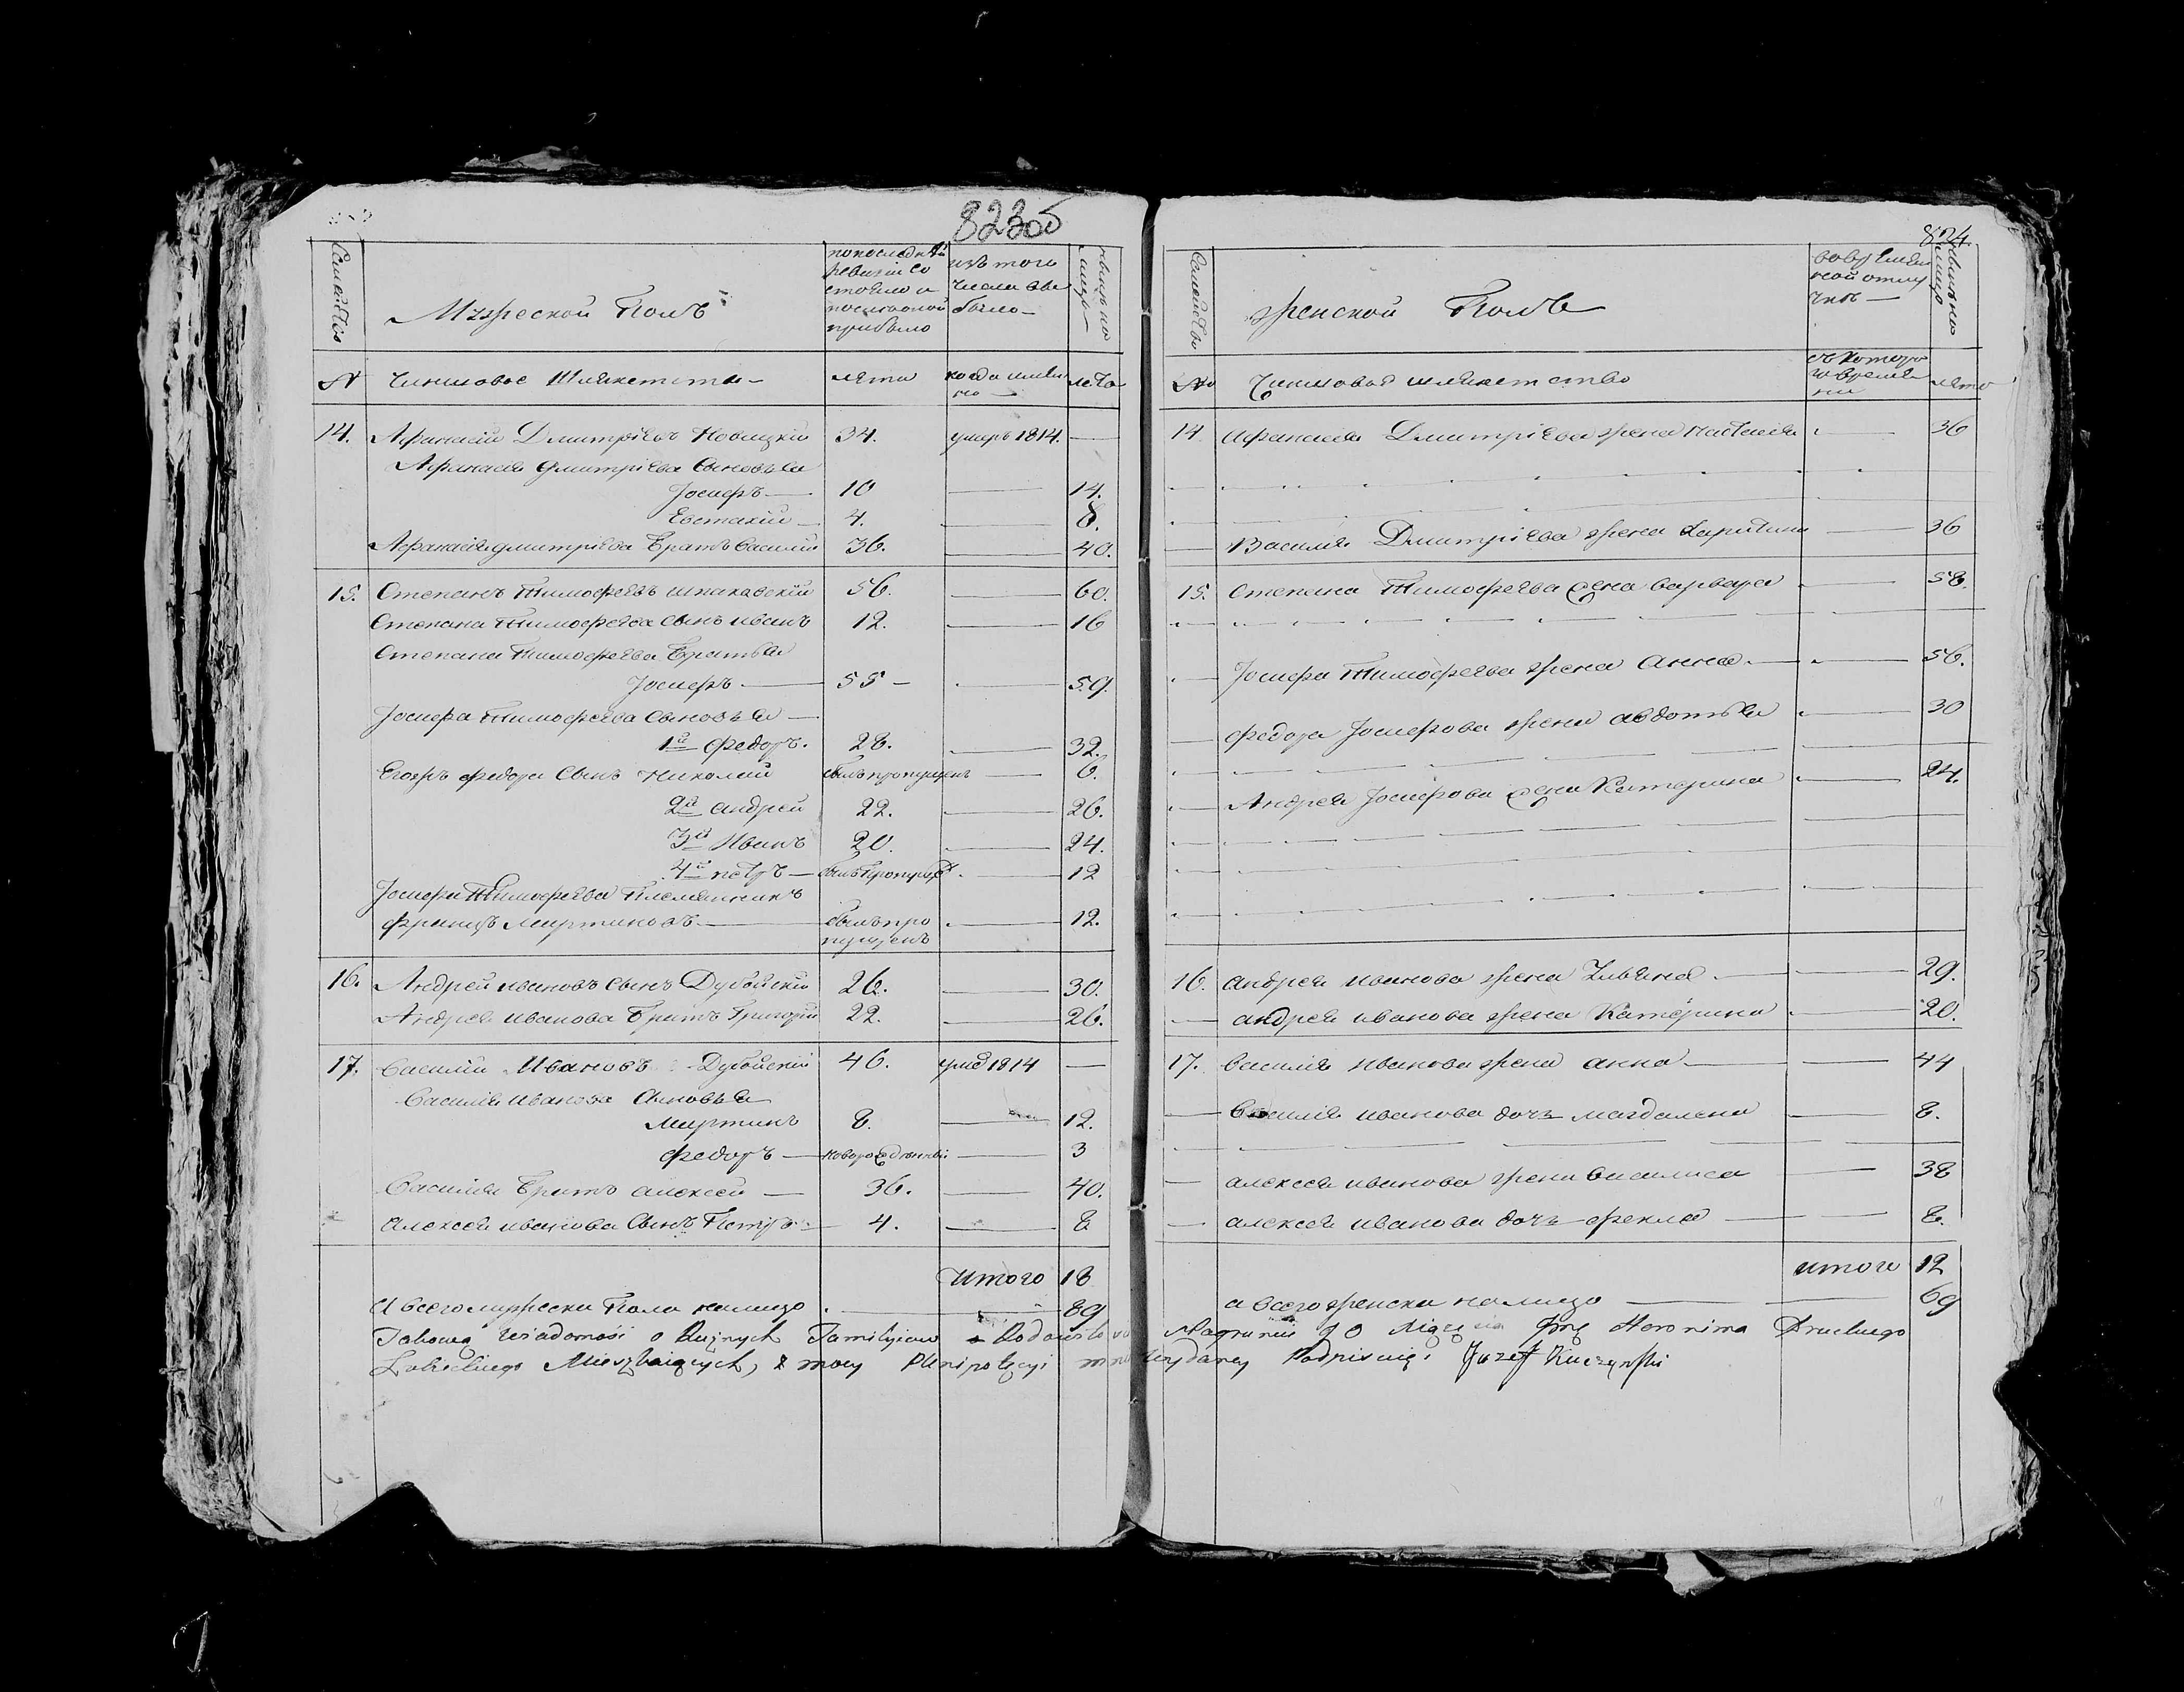 823об
Семейство
Мужеской Полъ
по последней ревизии состояло и после оной прибыло
изъ того числа выбыло
ныне на лицо
№
Чиншовое Шляхетство
лета
когда именно
лета
14. Афанасий Дмитріевъ Новицкій 34. умеръ 1814. —
Афанасія Дмитріева Сыновья
Іосифъ — 10 — 14.
Евстахий — 4. — 8.
Афанасія Дмитріева Братъ Василий 36. — 40.
15. Степанъ Тимофеевъ Шпаковскій 56. — 60.
Степана Тимофеева Сынъ Иванъ 12. — 16
Степана Тимофеева Братья
Іосифъ — 55 — 59.
Іосифа Тимофеева Сыновья —
1й Федоръ. 28. — 32.
Федора Сынъ Николай былъ пропущенъ — 6.
2й Андрей 22. — 26.
3й Иванъ 20. — 24.
4й Петръ — былъ пропущ — 12
Іосифа Тимофеева Племянникъ
Францъ Мартиновъ — былъ пропущенъ — 12.
16. Андрей Ивановъ Сынъ Дубойскій 26. — 30.
Андрея Иванова Братъ Григорій 22. — 26.
17. Василий Ивановъ Дубойский 46. умер 1814 —
Василія Иванова Сыновья
Мартинъ 8. — 12.
Федоръ — новорожденный — 3
Василія Братъ Алексей — 36. — 40.
Алексея Иванова Сынъ Петръ — 4. — 8
Итого 18
А всего мужеска Пола налицо — 89
824.
Семейство
Женской Полъ
во временной отлучке —
ныне на лицо
№
Чиншовое шляхетство
съ котораго времени
лета
14. Афанасія Дмитріева жена Настасія — 36
Василія Дмитріева жена Харитина — 36
15. Степана Тимофеева жена Варвара — 58.
Іосифа Тимофеева жена Анна — 56.
Федора Іосифова жена Авдотья — 30
Андрея Іосифова жена Катерина — 24.
16. Андрея Иванова жена Ульяна — 29.
— Андрея Иванова жена Катерина — 20.
17. Василія Иванова жена Анна — 44
— Василія Иванова дочь Магдалена — 8.
— Алексея Иванова жена Василиса — 38
— Алексея Иванова дочь Фекла — 8.
итого 12
а всего женска налицо — 69
Takową Wiadomość o Rużnych Familyiow
Lubeckiego Mieszkaiących, z mocy Plenipotęcyi mnie wydaney Podpisuię: Jozef Kuczynski